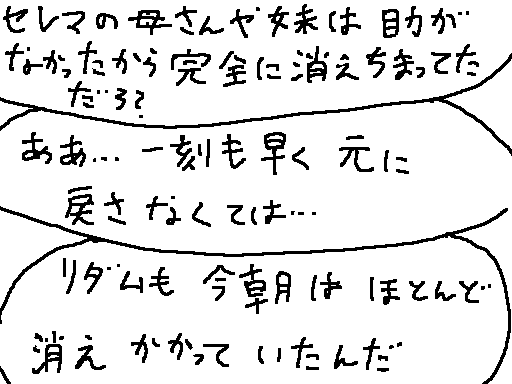 セレマの母さんや妹は助が
なかったから完全に消えちまってた
だろ?
ああ…一刻も早く元に
戻さなくては…
リダムも今朝はほとんど
消えかかっていたんだ